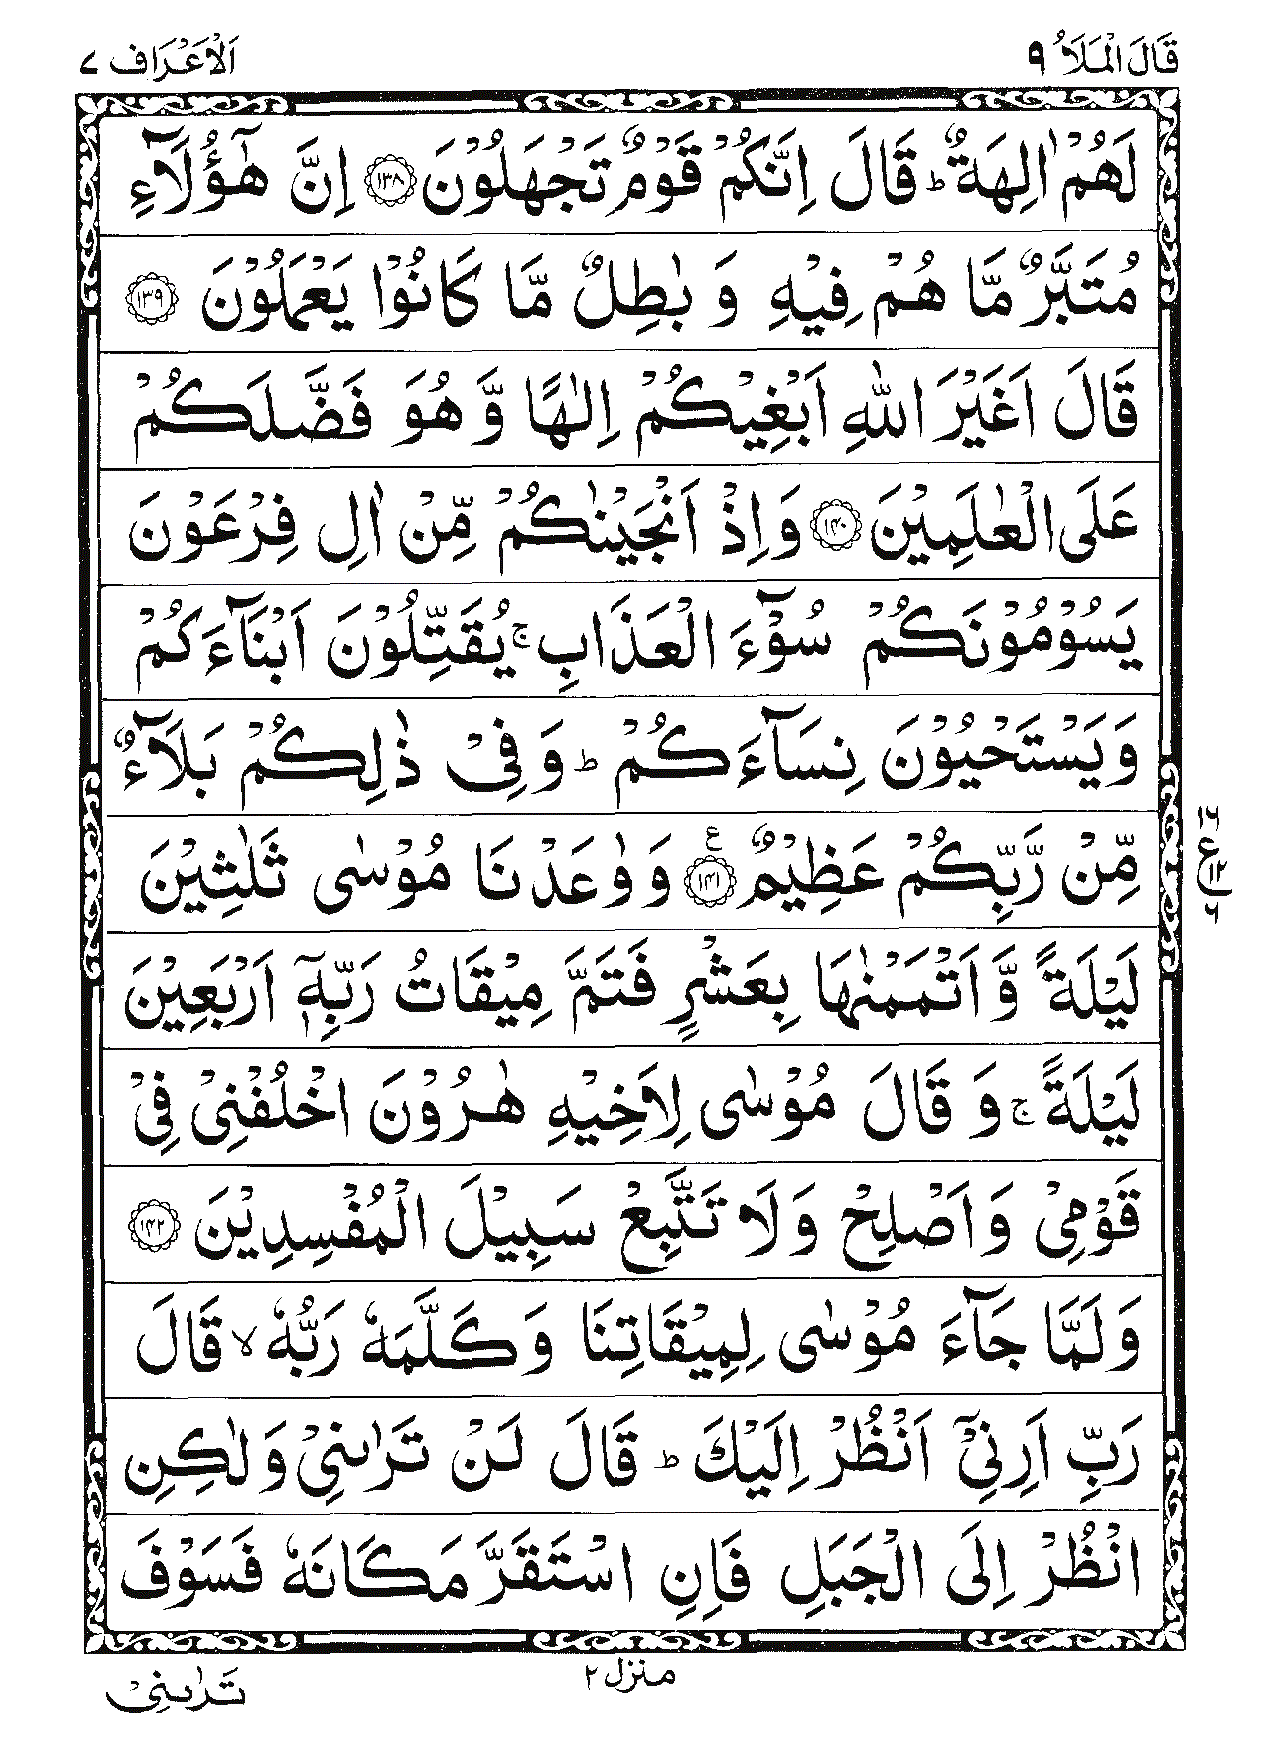 قَالَ الْمَلَاُ ٩
اَلْاَعْرَاف ٧
لَهُمْ اٰلِهَةٌ ؕ قَالَ اِنَّكُمْ قَوْمٌ تَجْهَلُوْنَ ﴿۱۳۸﴾ اِنَّ هٰۤؤُلَآءِ
مُتَبَّرٌ مَّا هُمْ فِيْهِ وَ بٰطِلٌ مَّا كَانُوْا يَعْمَلُوْنَ ﴿۱۳۹﴾
قَالَ اَغَيْرَ اللّٰهِ اَبْغِيْكُمْ اِلٰهًا وَّ هُوَ فَضَّلَكُمْ
عَلَى الْعٰلَمِيْنَ ﴿۱۴۰﴾ وَاِذْ اَنْجَيْنٰكُمْ مِّنْ اٰلِ فِرْعَوْنَ
يَسُوْمُوْنَكُمْ سُوْٓءَ الْعَذَابِ ۚ يُقَتِّلُوْنَ اَبْنَآءَكُمْ
وَيَسْتَحْيُوْنَ نِسَآءَكُمْ ؕ وَفِيْ ذٰلِكُمْ بَلَآءٌ
مِّنْ رَّبِّكُمْ عَظِيْمٌ ﴿۱۴۱﴾ ع وَ وٰعَدْنَا مُوْسٰى ثَلٰثِيْنَ
۱۶
ع
۱۲
۶
لَيْلَةً وَّ اَتْمَمْنٰهَا بِعَشْرٍ فَتَمَّ مِيْقَاتُ رَبِّهٖۤ اَرْبَعِيْنَ
لَيْلَةً ۚ وَ قَالَ مُوْسٰى لِاَخِيْهِ هٰرُوْنَ اخْلُفْنِيْ فِيْ
قَوْمِيْ وَ اَصْلِحْ وَلَا تَتَّبِعْ سَبِيْلَ الْمُفْسِدِيْنَ ﴿۱۴۲﴾
وَلَمَّا جَآءَ مُوْسٰى لِمِيْقَاتِنَا وَكَلَّمَهٗ رَبُّهٗ ۙ قَالَ
رَبِّ اَرِنِيْۤ اَنْظُرْ اِلَيْكَ ؕ قَالَ لَنْ تَرٰىنِيْ وَلٰكِنِ
انْظُرْ اِلَى الْجَبَلِ فَاِنِ اسْتَقَرَّ مَكَانَهٗ فَسَوْفَ
منزل ۲
تَرٰىنِيْ